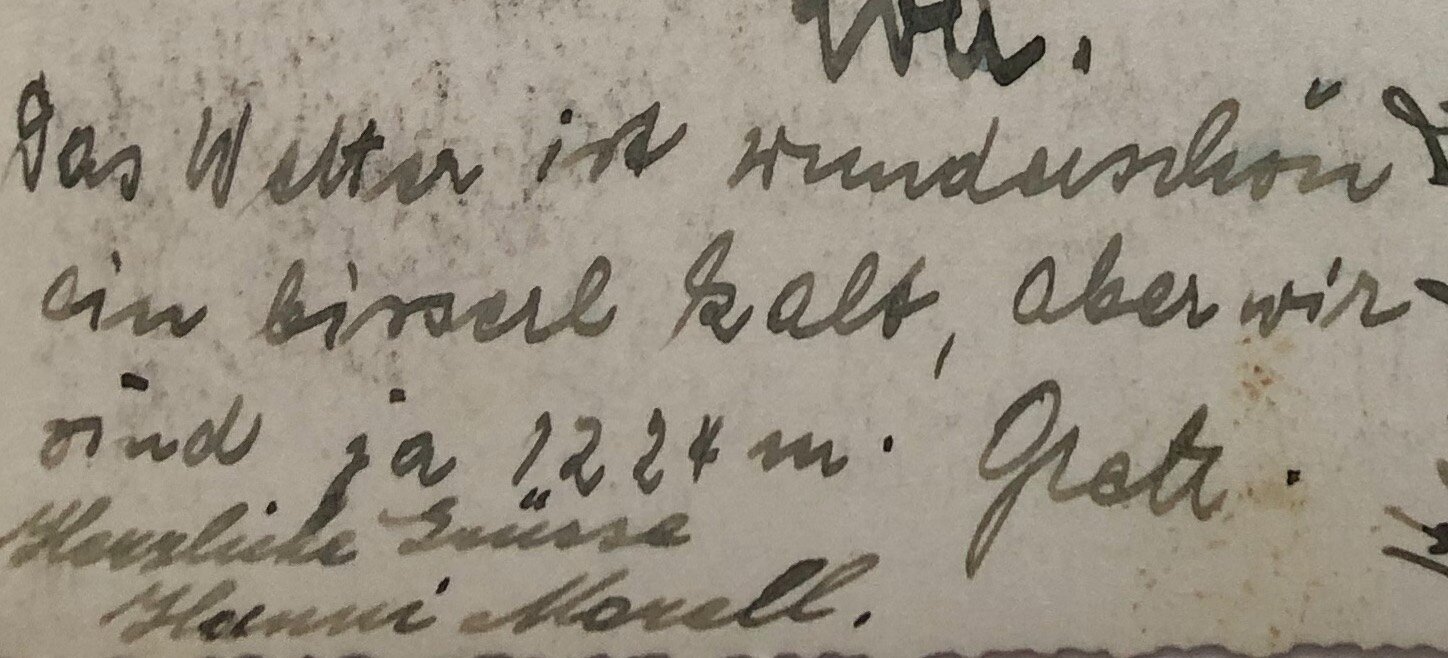 Das Wetter ist wunderschön
ein bisserl kalt, aber wir
sind ja 1224 m. Grete.
Herzliche Grüsse
Hanni Morell.